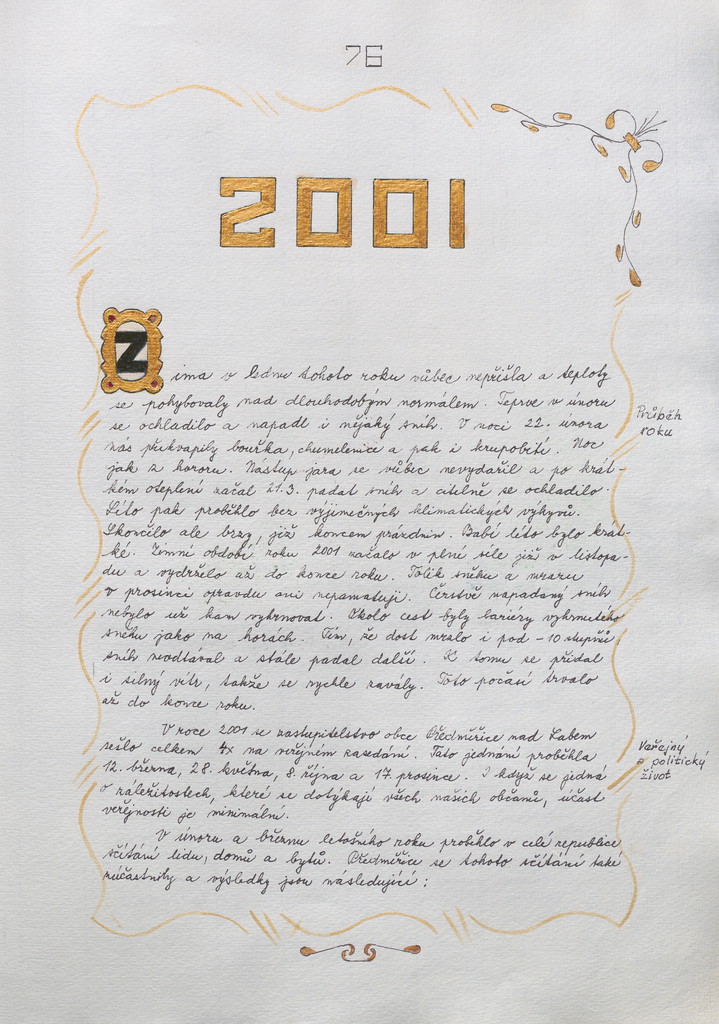 76
2001
Zima v lednu tohoto roku vůbec nepřišla a teploty
se pohybovaly nad dlouhodobým normálem. Teprve v únoru
se ochladilo a napadl i nějaký sníh. V noci 22. února
nás překvapily bouřka, chumelenice a pak i krupobití. Noc
jak z hororu. Nástup jara se vůbec nevydařil a po krát-
kém oteplení začal 21.3. padat sníh a citelně se ochladilo.
Léto pak proběhlo bez výjimečných klimatických výkyvů.
Skončilo ale brzy, již koncem prázdnin. Babí léto bylo krát-
ké. Zimní období roku 2001 začalo v plné síle již v listopa-
du a vydrželo až do konce roku. Tolik sněhu a mrazu
v prosinci opravdu ani nepamatuji. Čerstvě napadaný sníh
nebylo už kam vyhrnovat. Okolo cest byly bariéry vyhrnutého
sněhu jako na horách. Tím, že dost mrzlo i pod -10 stupňů
sníh neodtával a stále padal další. K tomu se přidal
i silný vítr, takže se rychle zavály. Toto počasí trvalo
až do konce roku.
Průběh
roku
V roce 2001 se zastupitelstvo obce Předměřice nad Labem
sešlo celkem 4x na veřejném zasedání. Tato jednání proběhla
12. března, 28. května, 8. října a 17. prosince. I když se jedná
o záležitostech, které se dotýkají všech našich občanů, účast
veřejnosti je minimální.
Veřejný
a politický
život
V únoru a březnu letošního roku proběhlo v celé republice
sčítání lidu, domů a bytů. Předměřice se tohoto sčítání také
zúčastnily a výsledky jsou následující: